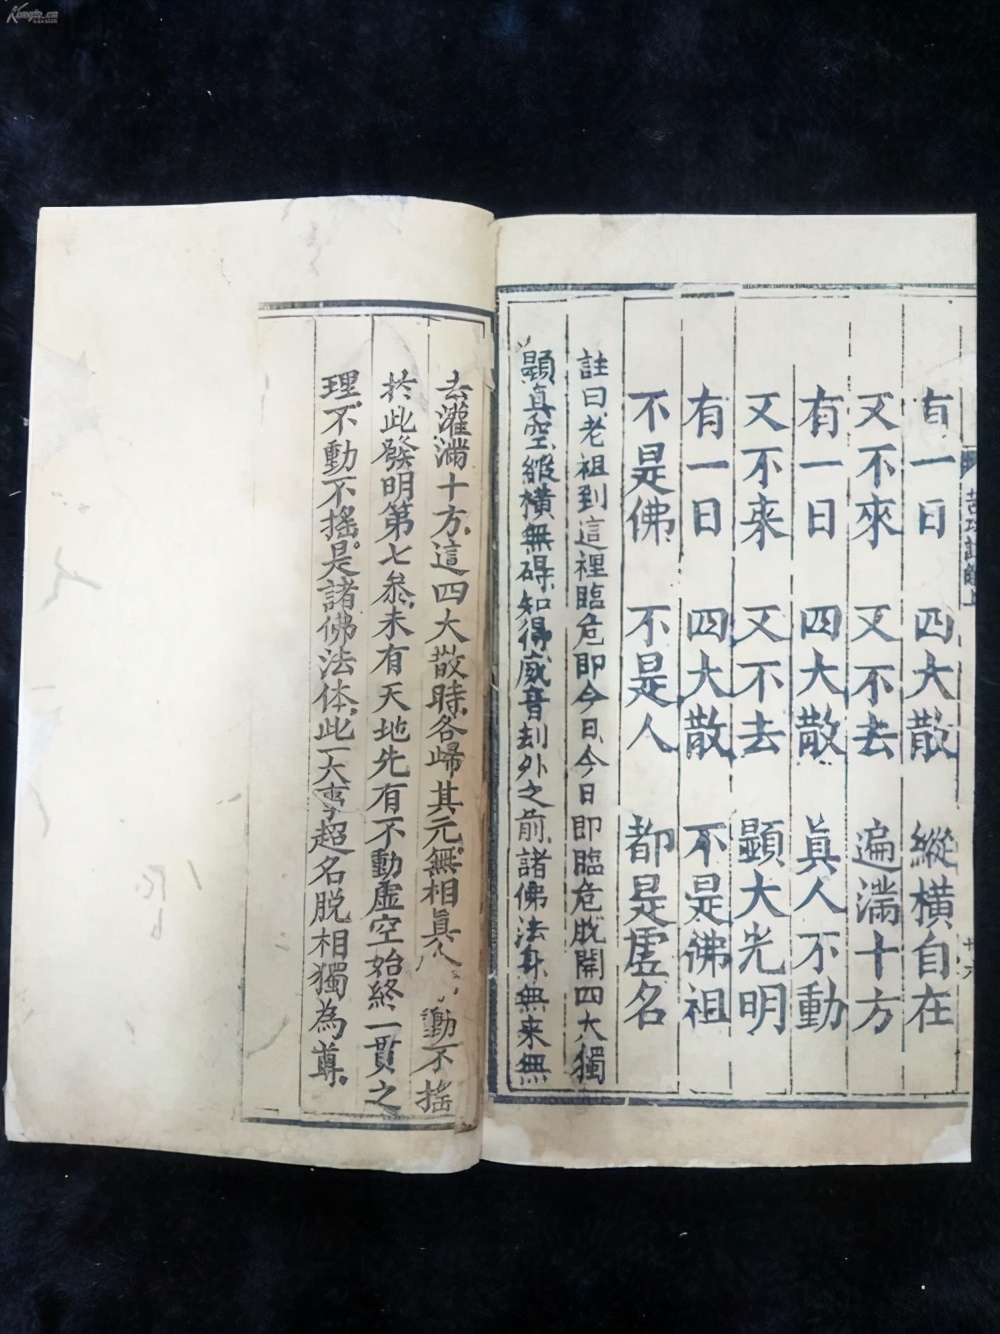 有一日　四大散　縱橫自在
又不來　又不去　遍滿十方
有一日　四大散　真人不動
又不来　又不去　顯大光明
有一日　四大散　不是佛祖
不是佛　不是人　都是虛名
註曰老祖到這裡臨危即今日今日即臨危脱開四大獨
顯真空縱橫無碍知得威音刦外之前諸佛法身無来無
去灌滿十方這四大散時各歸其元無相真人 動不搖
於此發明第七叅未有天地先有不動虛空始終一貫之
理不動不搖是諸佛法体此一大事超名脱相獨為尊
十六